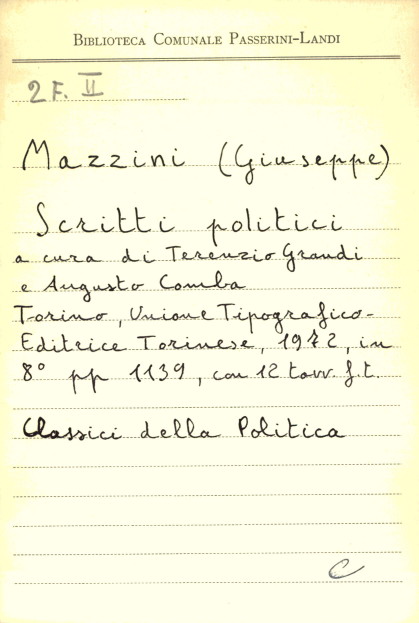 BIBLIOTECA COMUNALE PASSERINI-LANDI
2 F. II
Mazzini (Giuseppe)
Scritti politici
a cura di Terenzio Grandi
e Augusto Comba
Torino, Unione Tipografico-
Editrice Torinese, 1972, in
8° pp 1139, con 12 tavv. f.t.
Classici della Politica
C